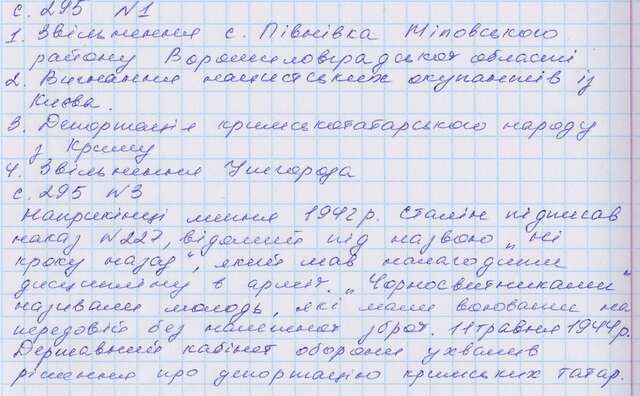 с. 295 №1
1. Звільнення с. Півнівка Міловського
району Ворошиловградської області
2. Вигнання нацистських окупантів із
Києва.
3. Депортація кримськотатарського народу
з Криму
4. Звільнення Ужгорода
с. 295 №3
Наприкінці липня 1942 р. Сталін підписав
наказ №227, відомий під назвою „Ні
кроку назад“, який мав налагодити
дисципліну в армії. „Чорносвитниками“
називали молодь, які мали воювати на
передовій без належної зброї. 11 травня 1944 р.
Державний кабінет оборони ухвалив
рішення про депортацію кримських татар.